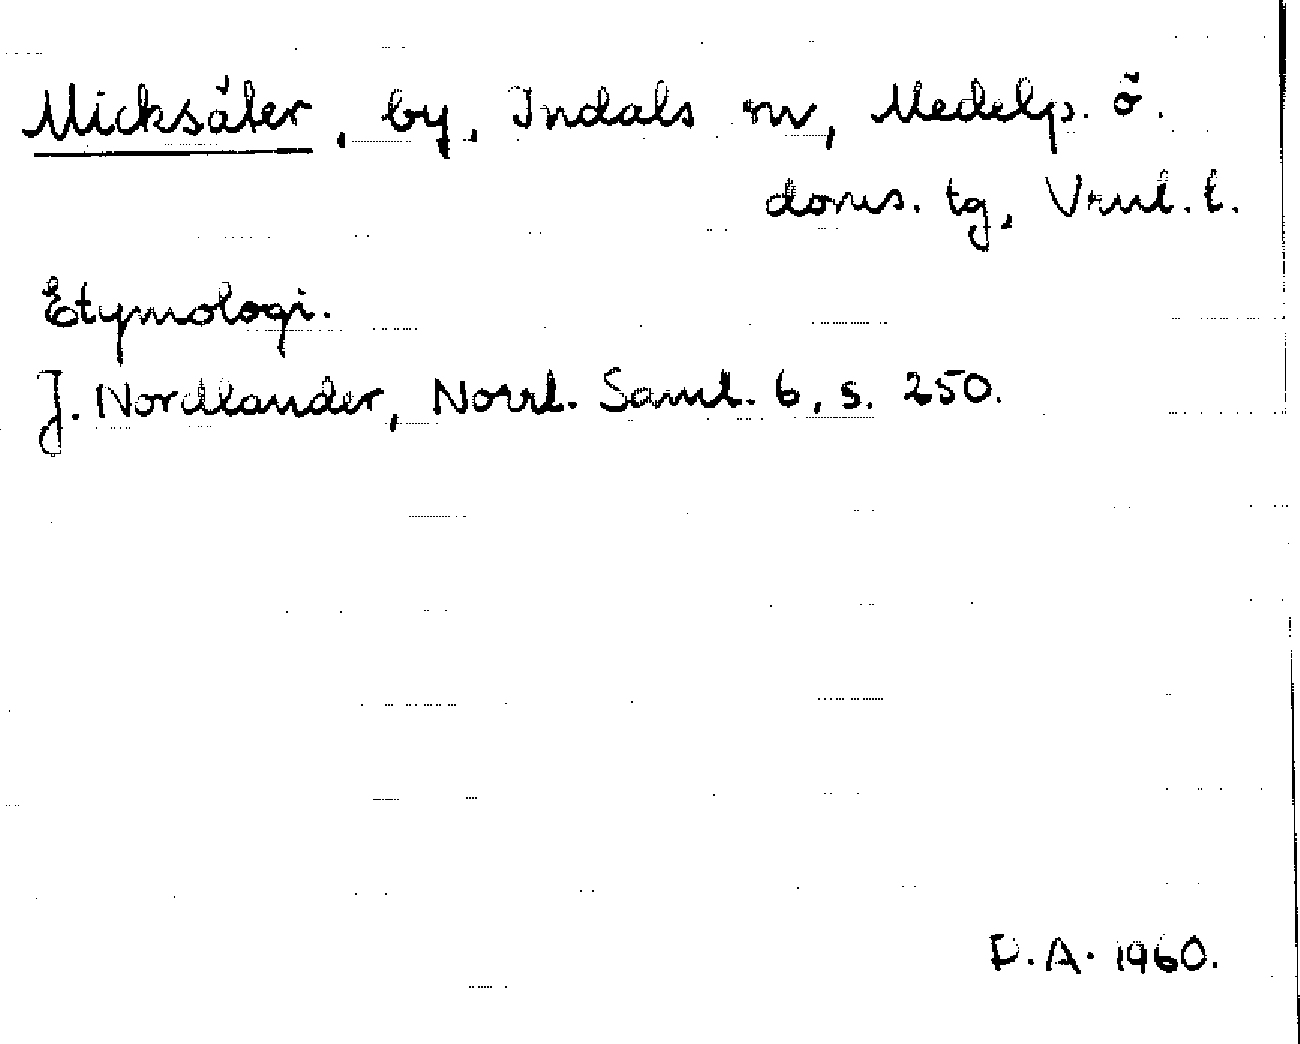 Micksäter, by, Indals sn, Medelp. ö.
doms. tg, Vrnl. l.
Etymologi.
J. Nordlander, Norrl. Saml. 6, s. 250.
D.A. 1960.